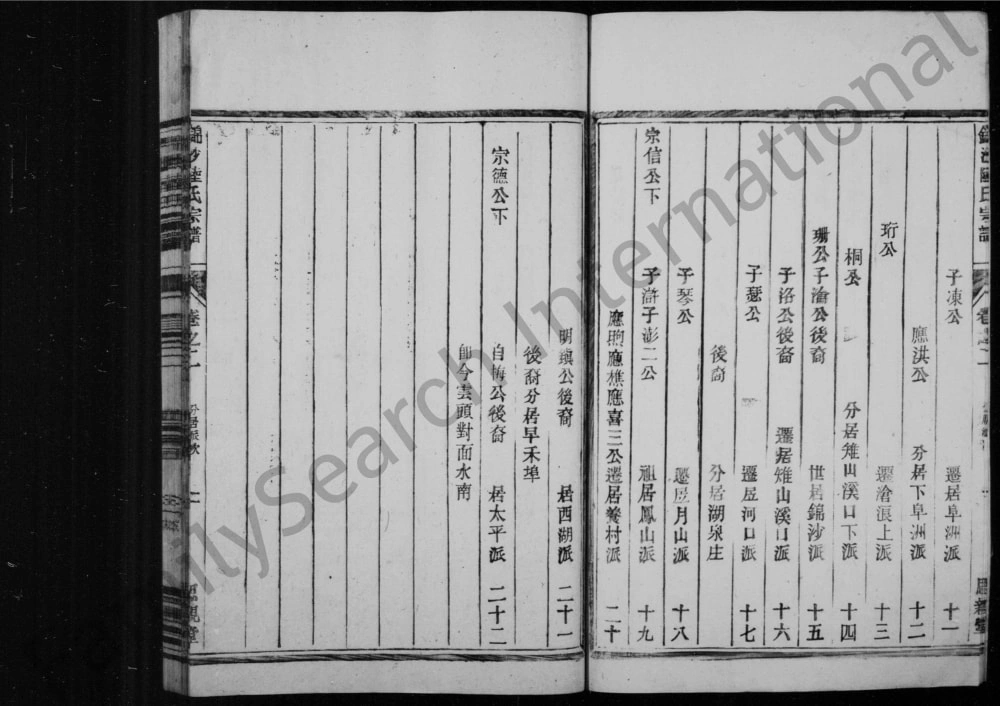 子凍公　遷居阜洲派　十一
應洪公　分居下阜洲派　十二
珩公　遷滄浪上派　十三
桐公　分居雉山溪口下派　十四
珊公子淪公後裔　世居錦沙派　十五
子洛公後裔　遷居雉山溪口派　十六
子瑟公　遷居河口派　十七
後裔　分居湖泉庄
子琴公　遷居月山派　十八
宗信公下　子滸子澎二公　祖居鳳山派　十九
應煦應樵應喜三公遷居養村派　二十
明公後裔　居西湖派　二十一
後裔分居早禾埠
宗德公下　自梅公後裔　居太平派　二十二
即今雲頭對面水南
錦沙陸氏宗譜　卷之二　分居派次
FamilySearch International